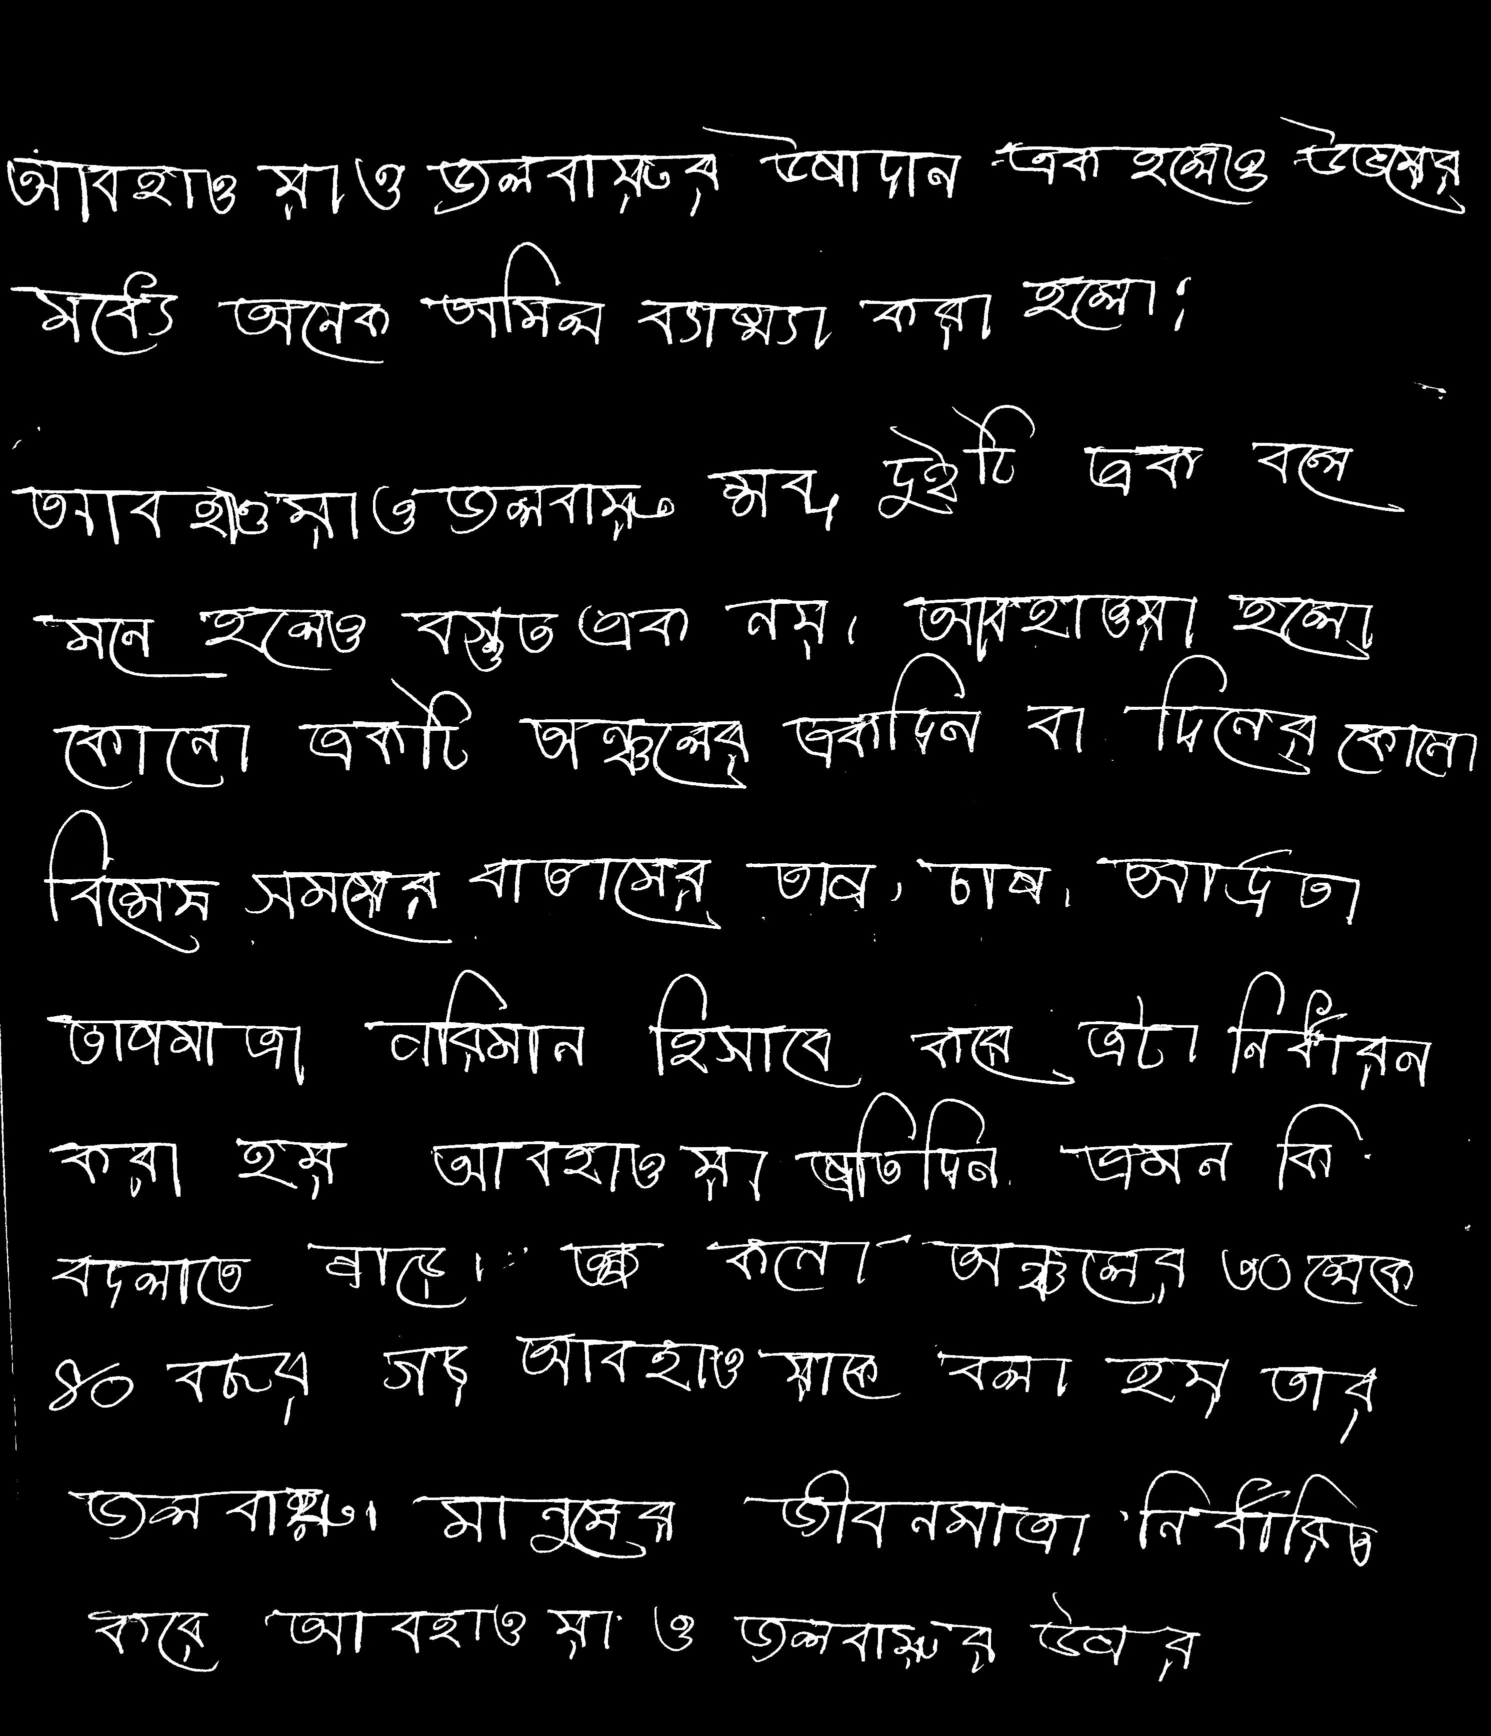 আবহাওয়া ও জলবায়ুর উপাদান এক হলেও উভয়ের
মধ্যে অনেক অমিল ব্যাখ্যা করা হলো:
আবহাওয়া ও জলবায়ু শব্দ দুইটি এক বলে
মনে হলেও বস্তুত এক নয়। আবহাওয়া হলো
কোনো একটি অঞ্চলের একদিন বা দিনের কোনো
বিশেষ সময়ের বাতাসের তাপ, চাপ, আর্দ্রতা
তাপমাত্রা পরিমান হিসাবে করে এটা নির্ধারন
করা হয় আবহাওয়া প্রতিদিন এমন কি
বদলাতে পারে। কনো অঞ্চলের ৩০ থেকে
৪০ বছর গড় আবহাওয়াকে বলা হয় তার
জলবায়ু। মানুষের জীবনযাত্রা নির্ধারিত
করে আবহাওয়া ও জলবায়ুর উপর